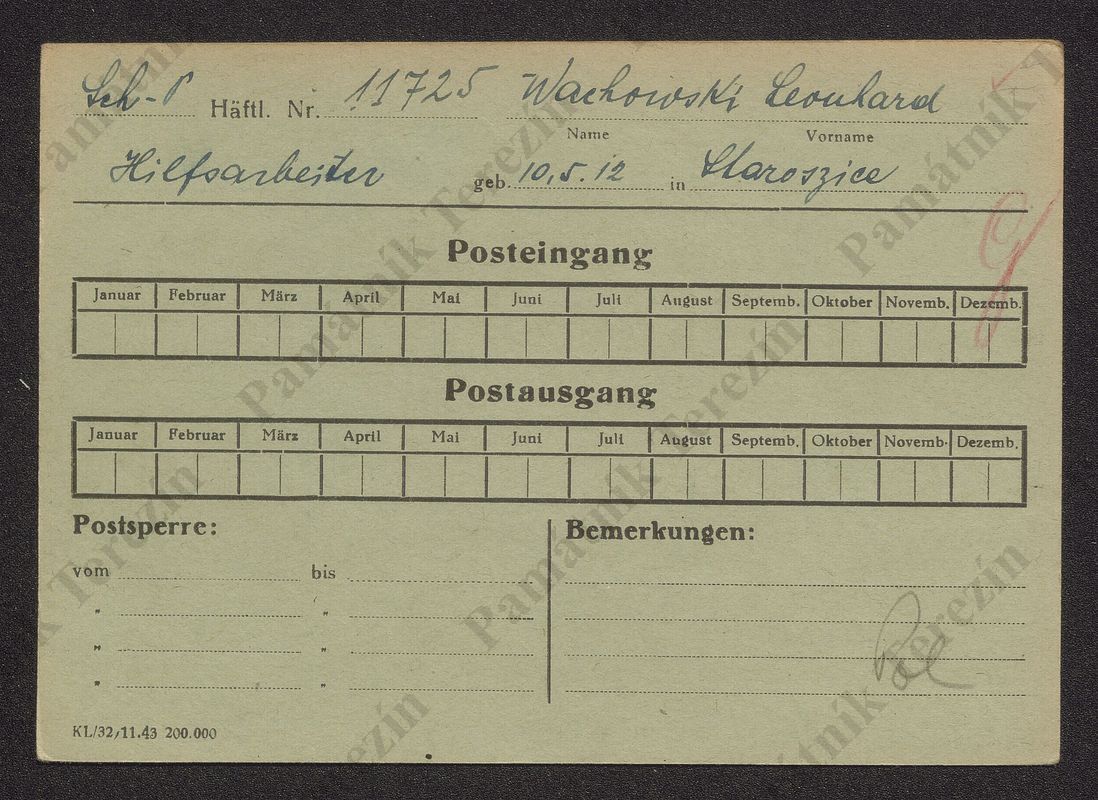 Sch-P Häftl. Nr. 11725 Wachowski Leonhard
Name Vorname
Hilfsarbeiter geb. 10.5.12 in Staroszice
Posteingang
Januar Februar März April Mai Juni Juli August Septemb. Oktober Novemb. Dezemb.
Postausgang
Januar Februar März April Mai Juni Juli August Septemb. Oktober Novemb. Dezemb.
Postsperre: Bemerkungen:
vom bis
" "
" "
" "
KL/32/11.43 200.000
Památník Terezín